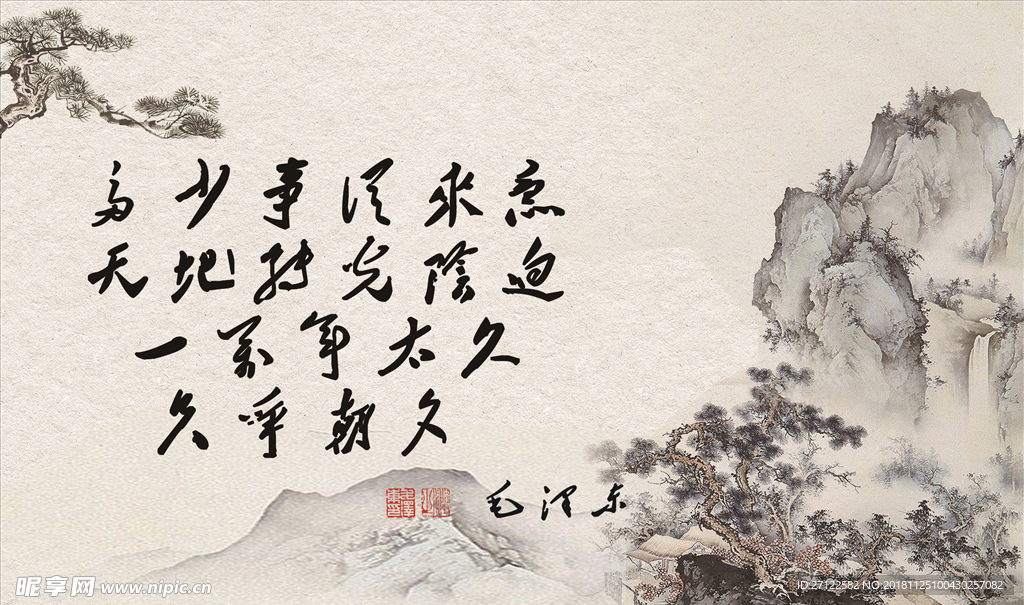 多少事從來急
天地轉光陰迫
一萬年太久
只爭朝夕
毛澤东
昵享网 www.nipic.cn
ID:27122582 NO:20181125100430257082